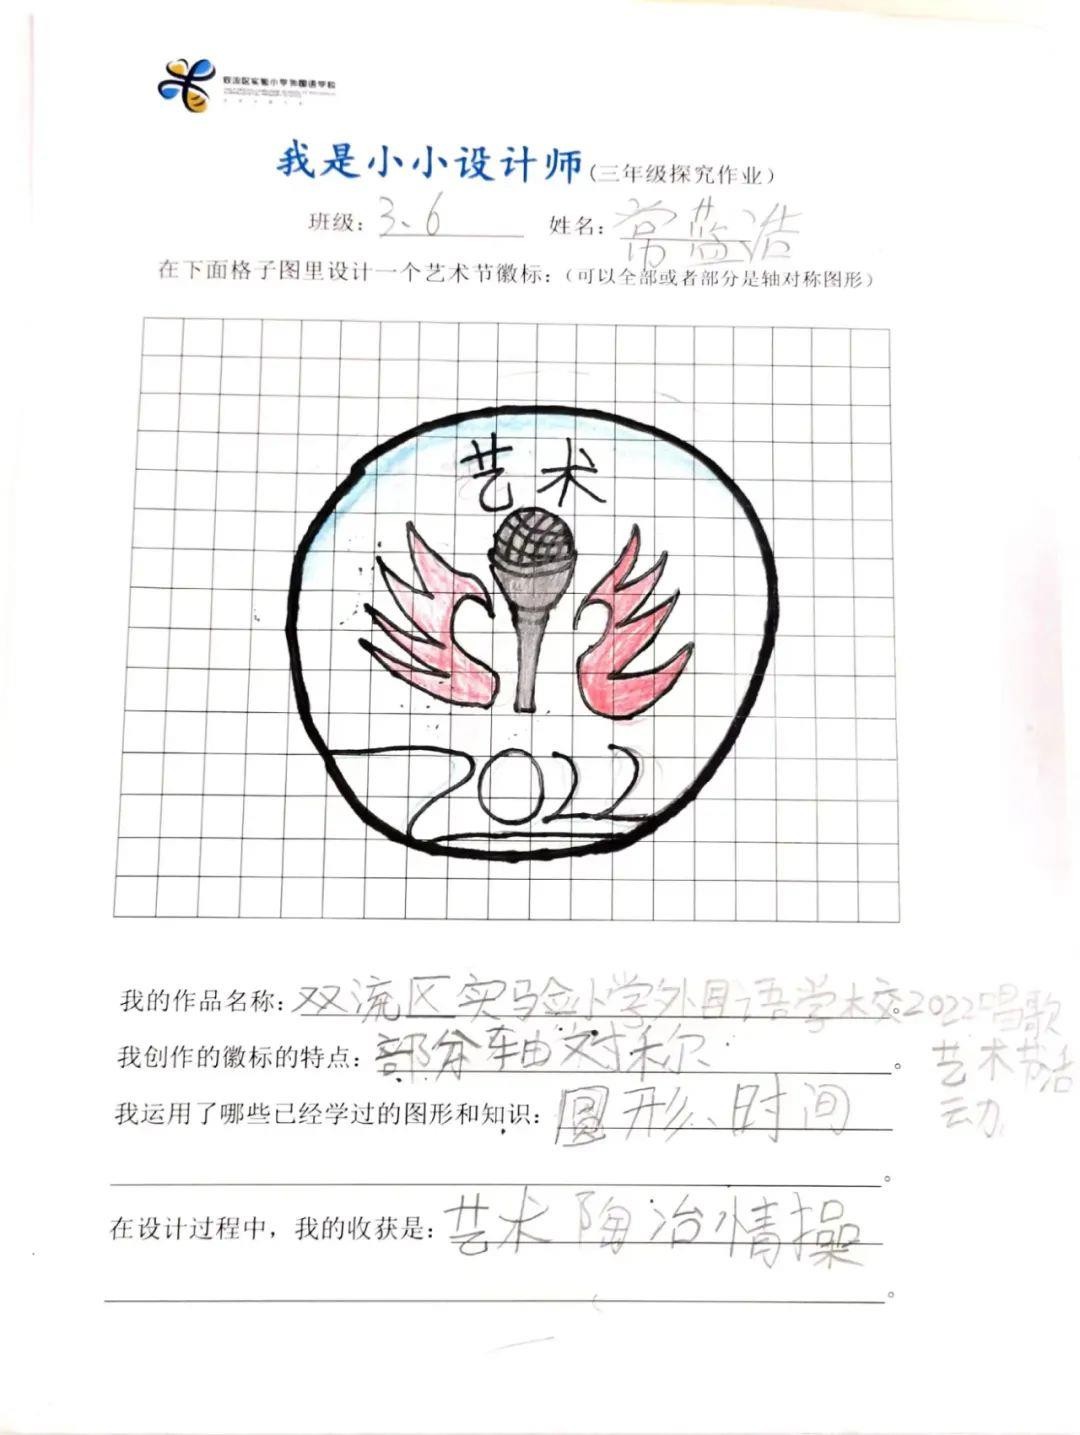 双流区实验小学外国语学校
我是小小设计师(三年级探究作业)
班级：3、6 姓名：常蓝浩
在下面格子图里设计一个艺术节徽标：(可以全部或者部分是轴对称图形)
艺术
2022
我的作品名称：双流区实验小学外国语学校2022唱歌
艺术节活
动。
我创作的徽标的特点：部分轴对称。
我运用了哪些已经学过的图形和知识：圆形、时间
。
在设计过程中，我的收获是：艺术陶冶情操
。